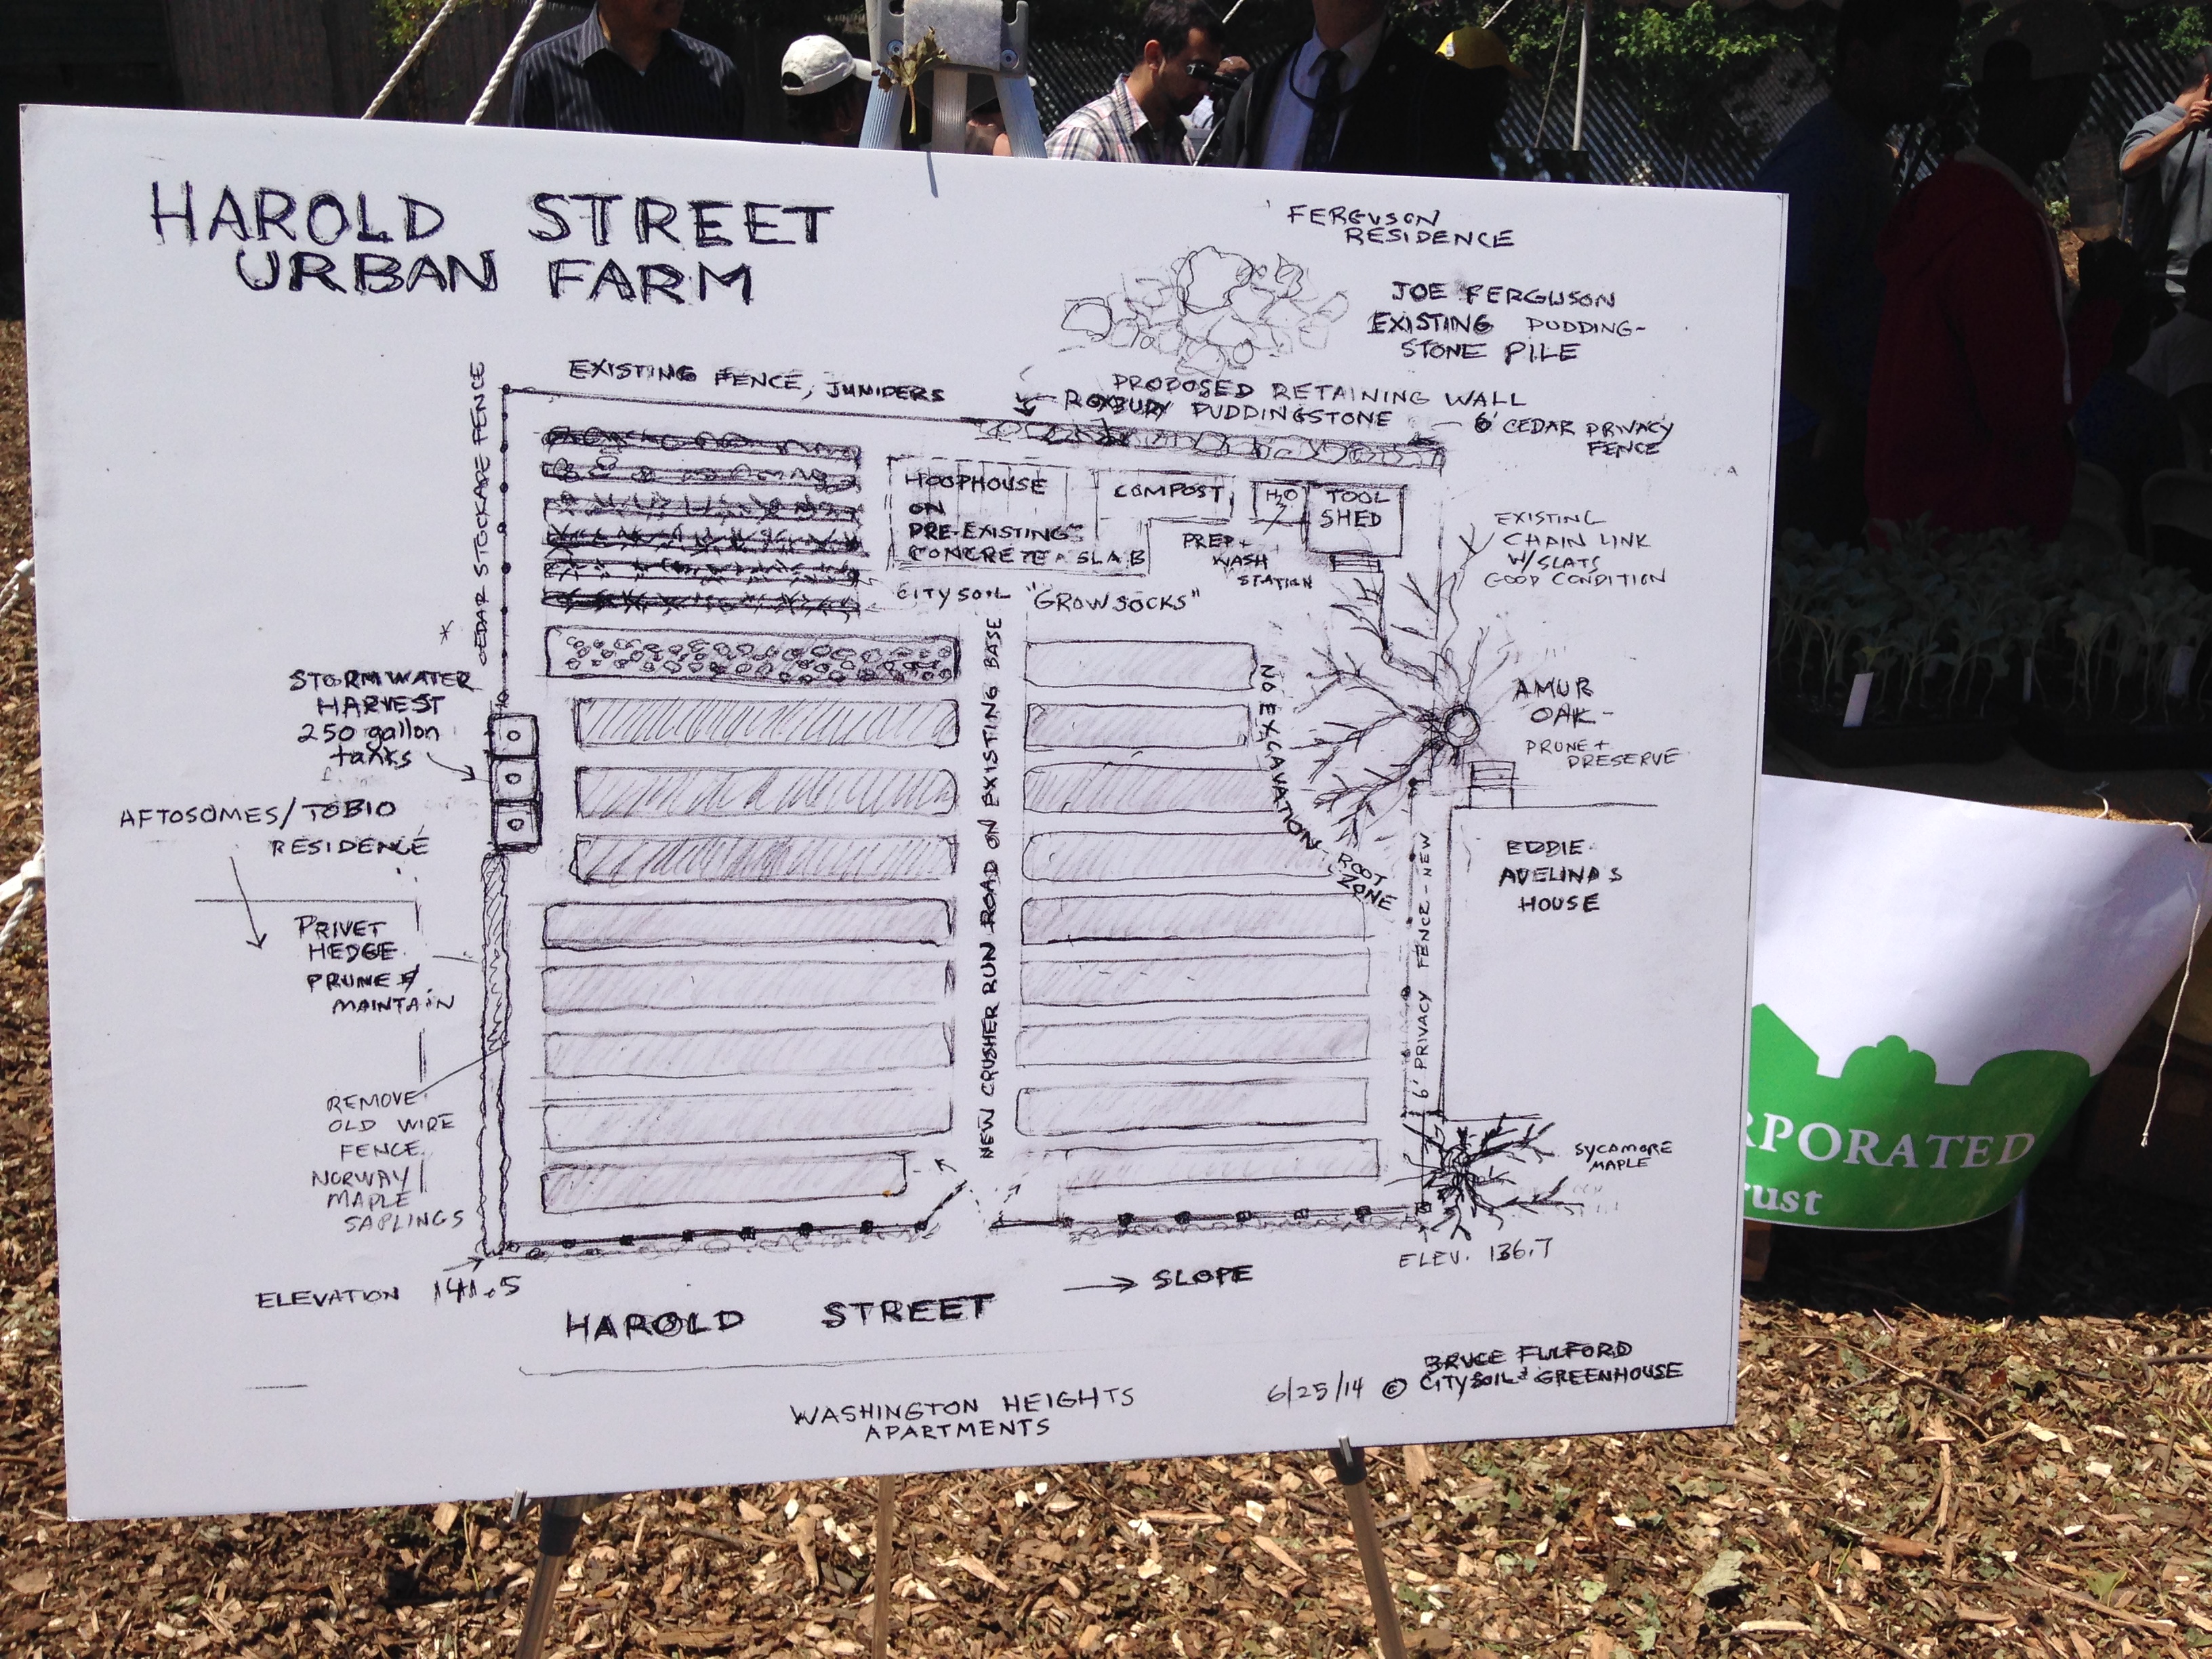 HAROLD STREET
URBAN FARM
FERGUSON
RESIDENCE
JOE FERGUSON
EXISTING PUDDING-
STONE PILE
EXISTING FENCE, JUNIPERS
PROPOSED RETAINING WALL
ROXBURY PUDDINGSTONE
6' CEDAR PRIVACY
FENCE
CEDAR STOCKADE FENCE
HOOPHOUSE
ON
PRE-EXISTING
CONCRETE SLAB
COMPOST
H2O
TOOL
SHED
PREP +
WASH
STATION
EXISTING
CHAIN LINK
W/SLATS
GOOD CONDITION
CITY SOIL "GROWSOCKS"
*
STORMWATER
HARVEST
250 gallon
tanks
NEW CRUSHER RUN ROAD ON EXISTING BASE
NO EXCAVATION - ROOT
ZONE
AMUR
OAK -
PRUNE +
PRESERVE
AFTOSOMES/TOBIO
RESIDENCE
EDDIE
AVELINO'S
HOUSE
6' PRIVACY FENCE - NEW
PRIVET
HEDGE
PRUNE &
MAINTAIN
REMOVE
OLD WIRE
FENCE
NORWAY
MAPLE
SAPLINGS
SYCAMORE
MAPLE
ELEVATION 141.5
ELEV. 136.7
→ SLOPE
HAROLD STREET
WASHINGTON HEIGHTS
APARTMENTS
6/25/14 © BRUCE FULFORD
CITY SOIL & GREENHOUSE
RPORATED
rust